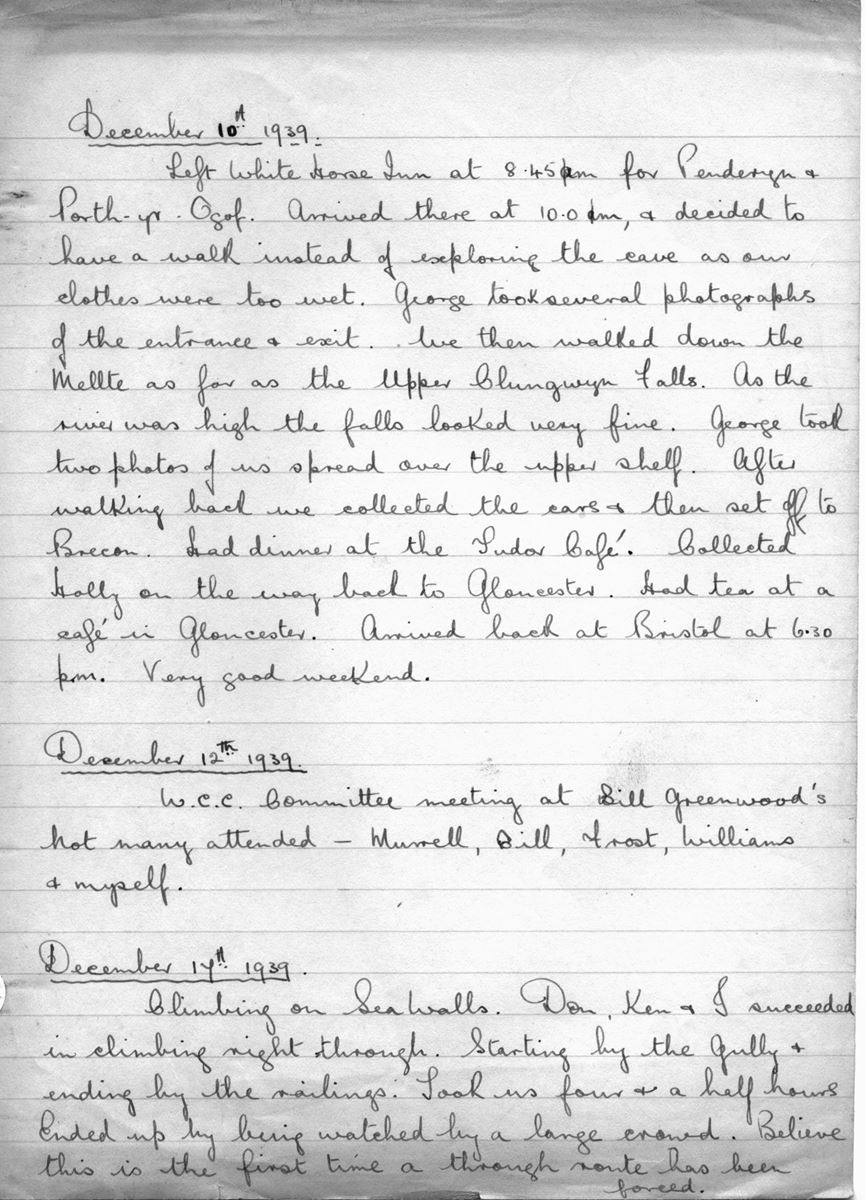 December 10th 1939.
Left White Horse Inn at 8.45 am for Penderyn &
Porth-yr-Ogof. Arrived there at 10.0 am, & decided to
have a walk instead of exploring the cave as our
clothes were too wet. George took several photographs
of the entrance & exit. We then walked down the
Mellte as far as the Upper Clungwyn Falls. As the
river was high the falls looked very fine. George took
two photos of us spread over the upper shelf. After
walking back we collected the cars & then set off to
Brecon. Had dinner at the Tudor Café. Collected
Holly on the way back to Gloncester. Had tea at a
café in Gloncester. Arrived back at Bristol at 6.30
pm. Very good weekend.
December 12th 1939.
W.C.C. Committee meeting at Bill Greenwood's
Not many attended - Murrell, Bill, Frost, Williams
& myself.
December 17th 1939.
Climbing on Sea Walls. Don, Ken & I succeeded
in climbing right through. Starting by the Gully &
ending by the railings. Took us four & a half hours
Ended up by being watched by a large crowd. Believe
this is the first time a through route has been
forced.